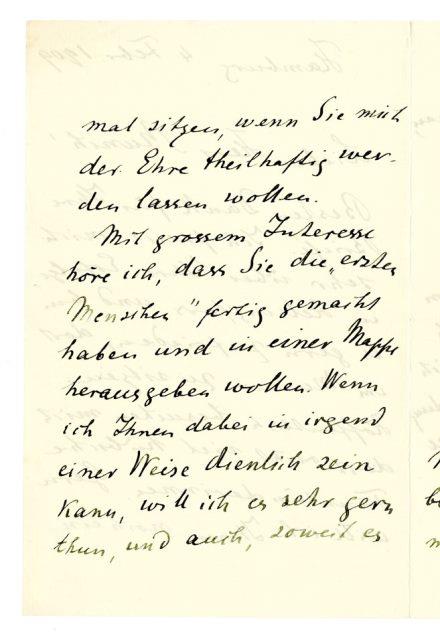 mal sitzen, wenn Sie mich
der Ehre theilhaftig wer-
den lassen wollen.
Mit grossem Interesse
höre ich, dass Sie die „ersten
Menschen" fertig gemacht
haben und in einer Mappe
herausgeben wollen. Wenn
ich Ihnen dabei in irgend
einer Weise dienlich sein
kann, will ich es sehr gern
thun, und auch, soweit es
Hamburg 4 Febr. 1909